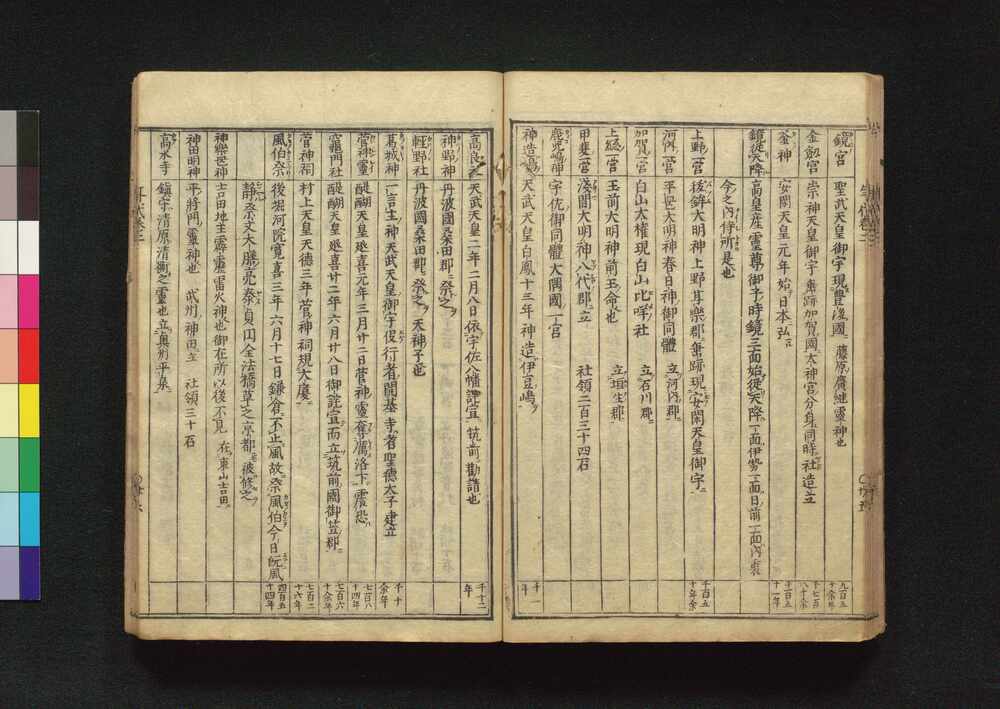 鏡宮 聖武天皇御宇現豊後國 藤原廣継霊神也 九百五十余年
金劔宮 崇神天皇御宇垂跡加賀國大神宮分身同時社造立 千七百八十余
釜神 安閑天皇元年始日本弘 千一百五十一年
鏡従天降 高皇産霊尊御子時鏡三面始従天降一面伊勢一面日前一面内裏
今之内侍所是也
上野一宮 抜鉾大明神上野耳樂郡垂跡現安閑天皇御宇 千百五十年余
河州一宮 平岡大明神春日神御同體 立河内郡
加賀一宮 白山大権現白山比咩社 立石川郡
上総一宮 玉前大明神前玉命也 立埴生郡
甲斐一宮 浅間大明神八代郡立 社領二百三十四石
鹿児嶋神 宇佐御同體大隅國一宮
神造嶋 天武天皇白鳳十三年神造伊豆嶋 千一年
高良宮 天武天皇二年二月八日依宇佐八幡託宣筑前勧請也 千十二年
神野神 丹波國桑田郡祭之 天神子也
軽野社 丹波國桑田郡祭之
葛城神 一言主神天武天皇御宇役行者開基寺者聖徳太子建立 千十余年
菅神霊 醍醐天皇延喜元年三月廿二日菅神霊奮厲洛下震恐 七百八十四年
竈門社 醍醐天皇延喜廿二年六月廿八日御託宣而立筑前國御笠郡 七百六十余年
菅神祠 村上天皇天徳三年菅神祠規大慶 七百二十六年
風伯祭 後堀河院寛喜三年六月十七日鎌倉不止風故祭風伯今日阮風 四百五十四年
静祭丈大膳亮泰貞因全法橋草之京都被修之
神樂岡神 吉田地主霹靂雷火神也御在所以後不見 在東山吉田
神田明神 平将門霊神也 武州神田立 社領三十石
高水寺 鎮守清原清衡之霊也立奥州平泉